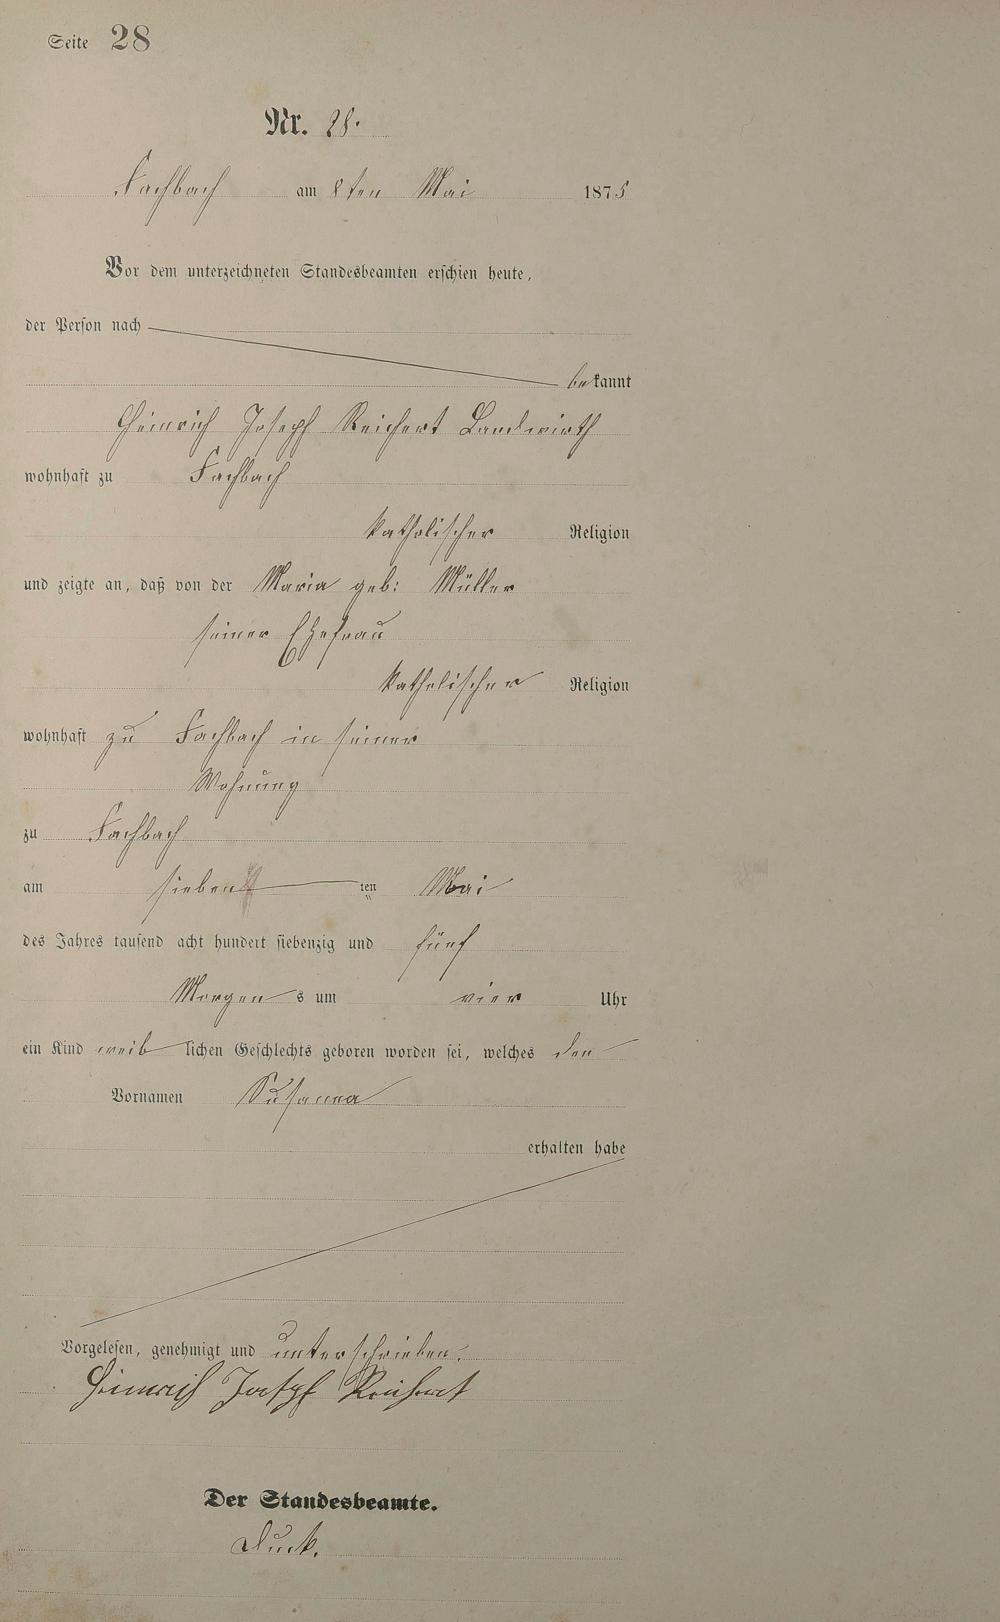 Seite 28
Nr. 28.
Fachbach am 8ten Mai 1875
Vor dem unterzeichneten Standesbeamten erschien heute,
der Person nach
bekannt
Heinrich Joseph Reichert Landwirth
wohnhaft zu Fachbach
katholischer Religion
und zeigte an, daß von der Maria geb: Müller
seiner Ehefrau
katholischer Religion
wohnhaft zu Fachbach in seiner
Wohnung
zu Fachbach
am sieben ten Mai
des Jahres tausend acht hundert siebenzig und fünf
Morgens um vier Uhr
ein Kind weiblichen Geschlechts geboren worden sei, welches den
Vornamen Susanna
erhalten habe
Vorgelesen, genehmigt und unterschrieben.
Heinrich Joseph Reichert
Der Standesbeamte.